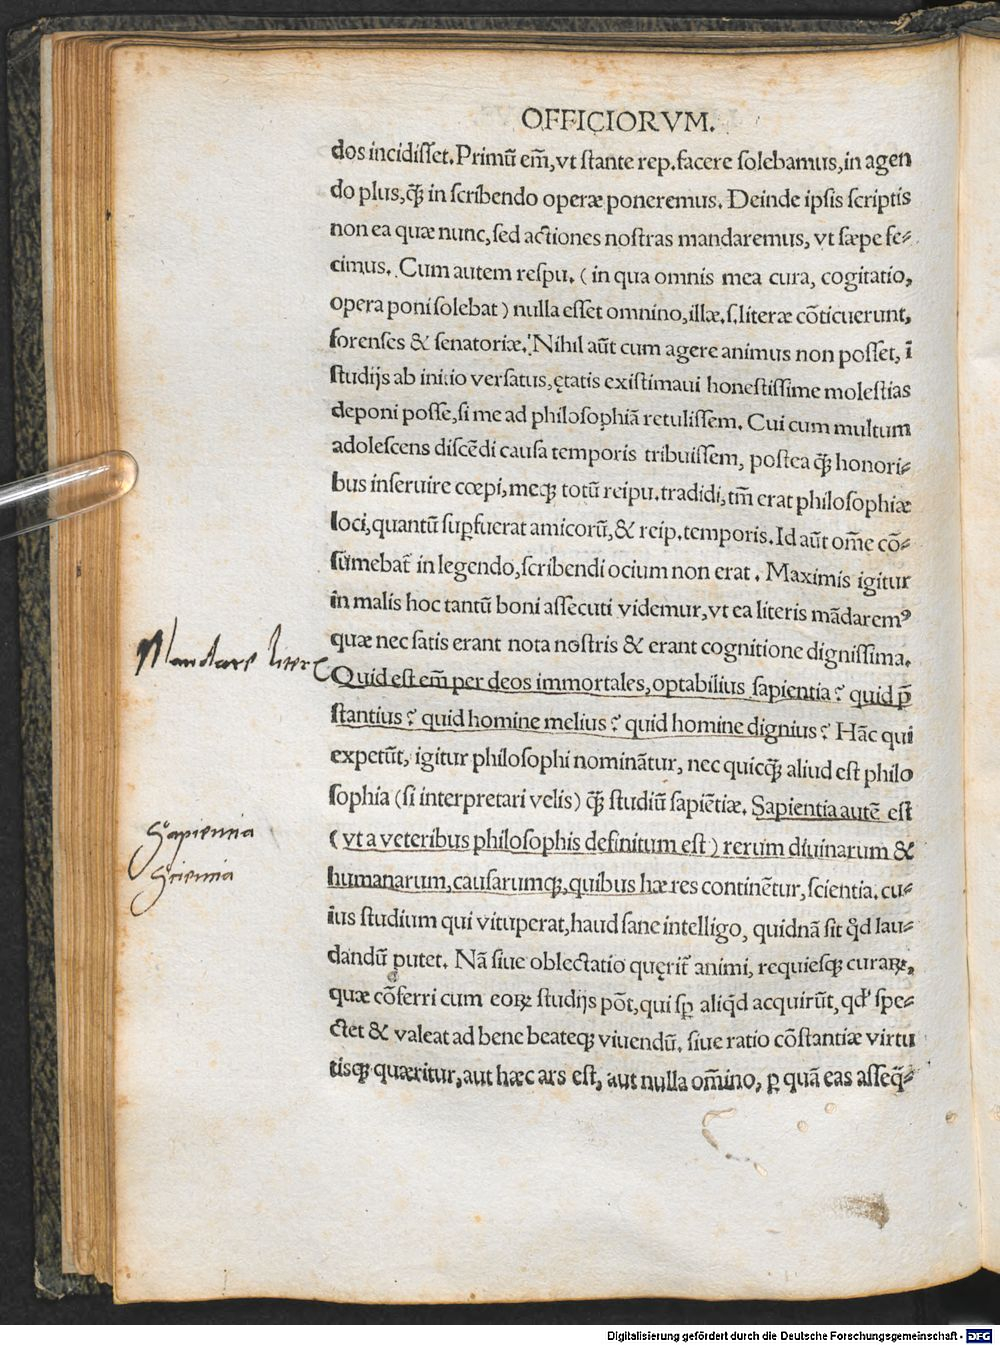 OFFICIORVM.
dos incidiſſet. Primũ em̃, vt ſtante rep. facere ſolebamus, in agen
do plus, q̃ꝫ in ſcribendo operæ poneremus. Deinde ipſis ſcriptis
non ea quæ nunc, ſed actiones noſtras mandaremus, vt ſæpe fe⸗
cimus. Cum autem reſpu. (in qua omnis mea cura, cogitatio,
opera poni ſolebat) nulla eſſet omnino, illæ. ſ. literæ cõticuerunt,
forenſes & ſenatoriæ. Nihil aũt cum agere animus non poſſet, ĩ
ſtudijs ab initio verſatus, ętatis exiſtimaui honeſtiſſime moleſtias
deponi poſſe, ſi me ad philoſophiã retuliſſem. Cui cum multum
adoleſcens diſcẽdi cauſa temporis tribuiſſem, poſtea q̃ꝫ honori⸗
bus inſeruire cœpi, meqꝫ totũ reipu. tradidi, tm̃ erat philoſophiæ
loci, quantũ ſuꝑfuerat amicorũ, & reip. temporis. Id aũt om̃e cõ⸗
ſũmebat̃ in legendo, ſcribendi ocium non erat. Maximis igitur
in malis hoc tantũ boni aſſecuti videmur, vt ea literis mãdaremꝰ
quæ nec ſatis erant nota noſtris & erant cognitione digniſſima.
Mandare liter
Quid eſt em̃ per deos immortales, optabilius ſapientia? quid p̃
ſtantius? quid homine melius? quid homine dignius? Hãc qui
expetũt, igitur philoſophi nominãtur, nec quicq̃ꝫ aliud eſt philo
ſophia (ſi interpretari velis) q̃ꝫ ſtudiũ ſapiẽtiæ. Sapientia autẽ eſt
Sapientia
(vt a veteribus philoſophis definitum eſt) rerum diuinarum &
Scientia
humanarum, cauſarumqꝫ, quibus hæ res continẽtur, ſcientia. cu⸗
ius ſtudium qui vituperat, haud ſane intelligo, quidnã ſit q̇d lau⸗
dandũ putet. Nã ſiue oblectatio quęrit̃ animi, requieſqꝫ curaꝝ,
quæ cõferri cum eoꝝ ſtudijs põt, qui ſꝑ aliq̇d acquirũt, qd' ſpe⸗
ctet & valeat ad bene beateqꝫ viuendũ. ſiue ratio cõſtantiæ virtu
tiſqꝫ quæritur, aut hæc ars eſt, aut nulla om̃ino, ꝑ quã eas aſſeq̃⸗
Digitalisierung gefördert durch die Deutsche Forschungsgemeinschaft - DFG